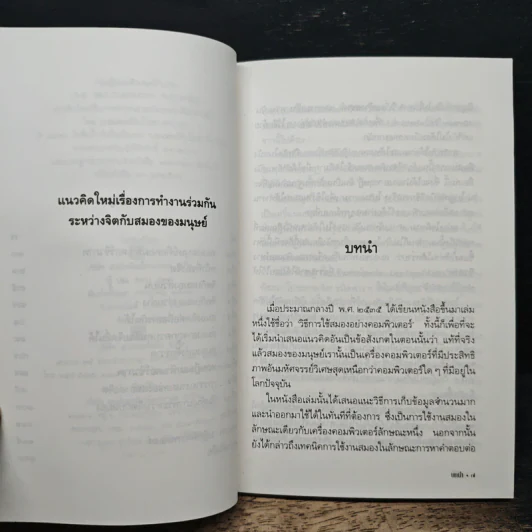 แนวคิดใหม่เรื่องการทำงานร่วมกัน
ระหว่างจิตกับสมองของมนุษย์
บทนำ
เมื่อประมาณกลางปี พ.ศ. ๒๕๓๕ ได้เขียนหนังสือขึ้นมาเล่ม
หนึ่งใช้ชื่อว่า "วิธีการใช้สมองอย่างคอมพิวเตอร์" ทั้งนี้ก็เพื่อที่จะ
ได้เริ่มนำเสนอแนวคิดอันเป็นข้อสังเกตในตอนนั้นว่า แท้ที่จริง
แล้วสมองของมนุษย์เรานั้นเป็นเครื่องคอมพิวเตอร์ที่มีประสิทธิ
ภาพอันมหัศจรรย์วิเศษสุดเหนือกว่าคอมพิวเตอร์ใด ๆ ที่มีอยู่ใน
โลกปัจจุบัน
ในหนังสือเล่มนั้นได้เสนอแนะวิธีการเก็บข้อมูลจำนวนมาก
และนำออกมาใช้ได้ในทันทีที่ต้องการ ซึ่งเป็นการใช้งานสมองใน
ลักษณะเดียวกับเครื่องคอมพิวเตอร์ลักษณะหนึ่ง นอกจากนั้น
ยังได้กล่าวถึงเทคนิคการใช้งานสมองในลักษณะการหาคำตอบต่อ